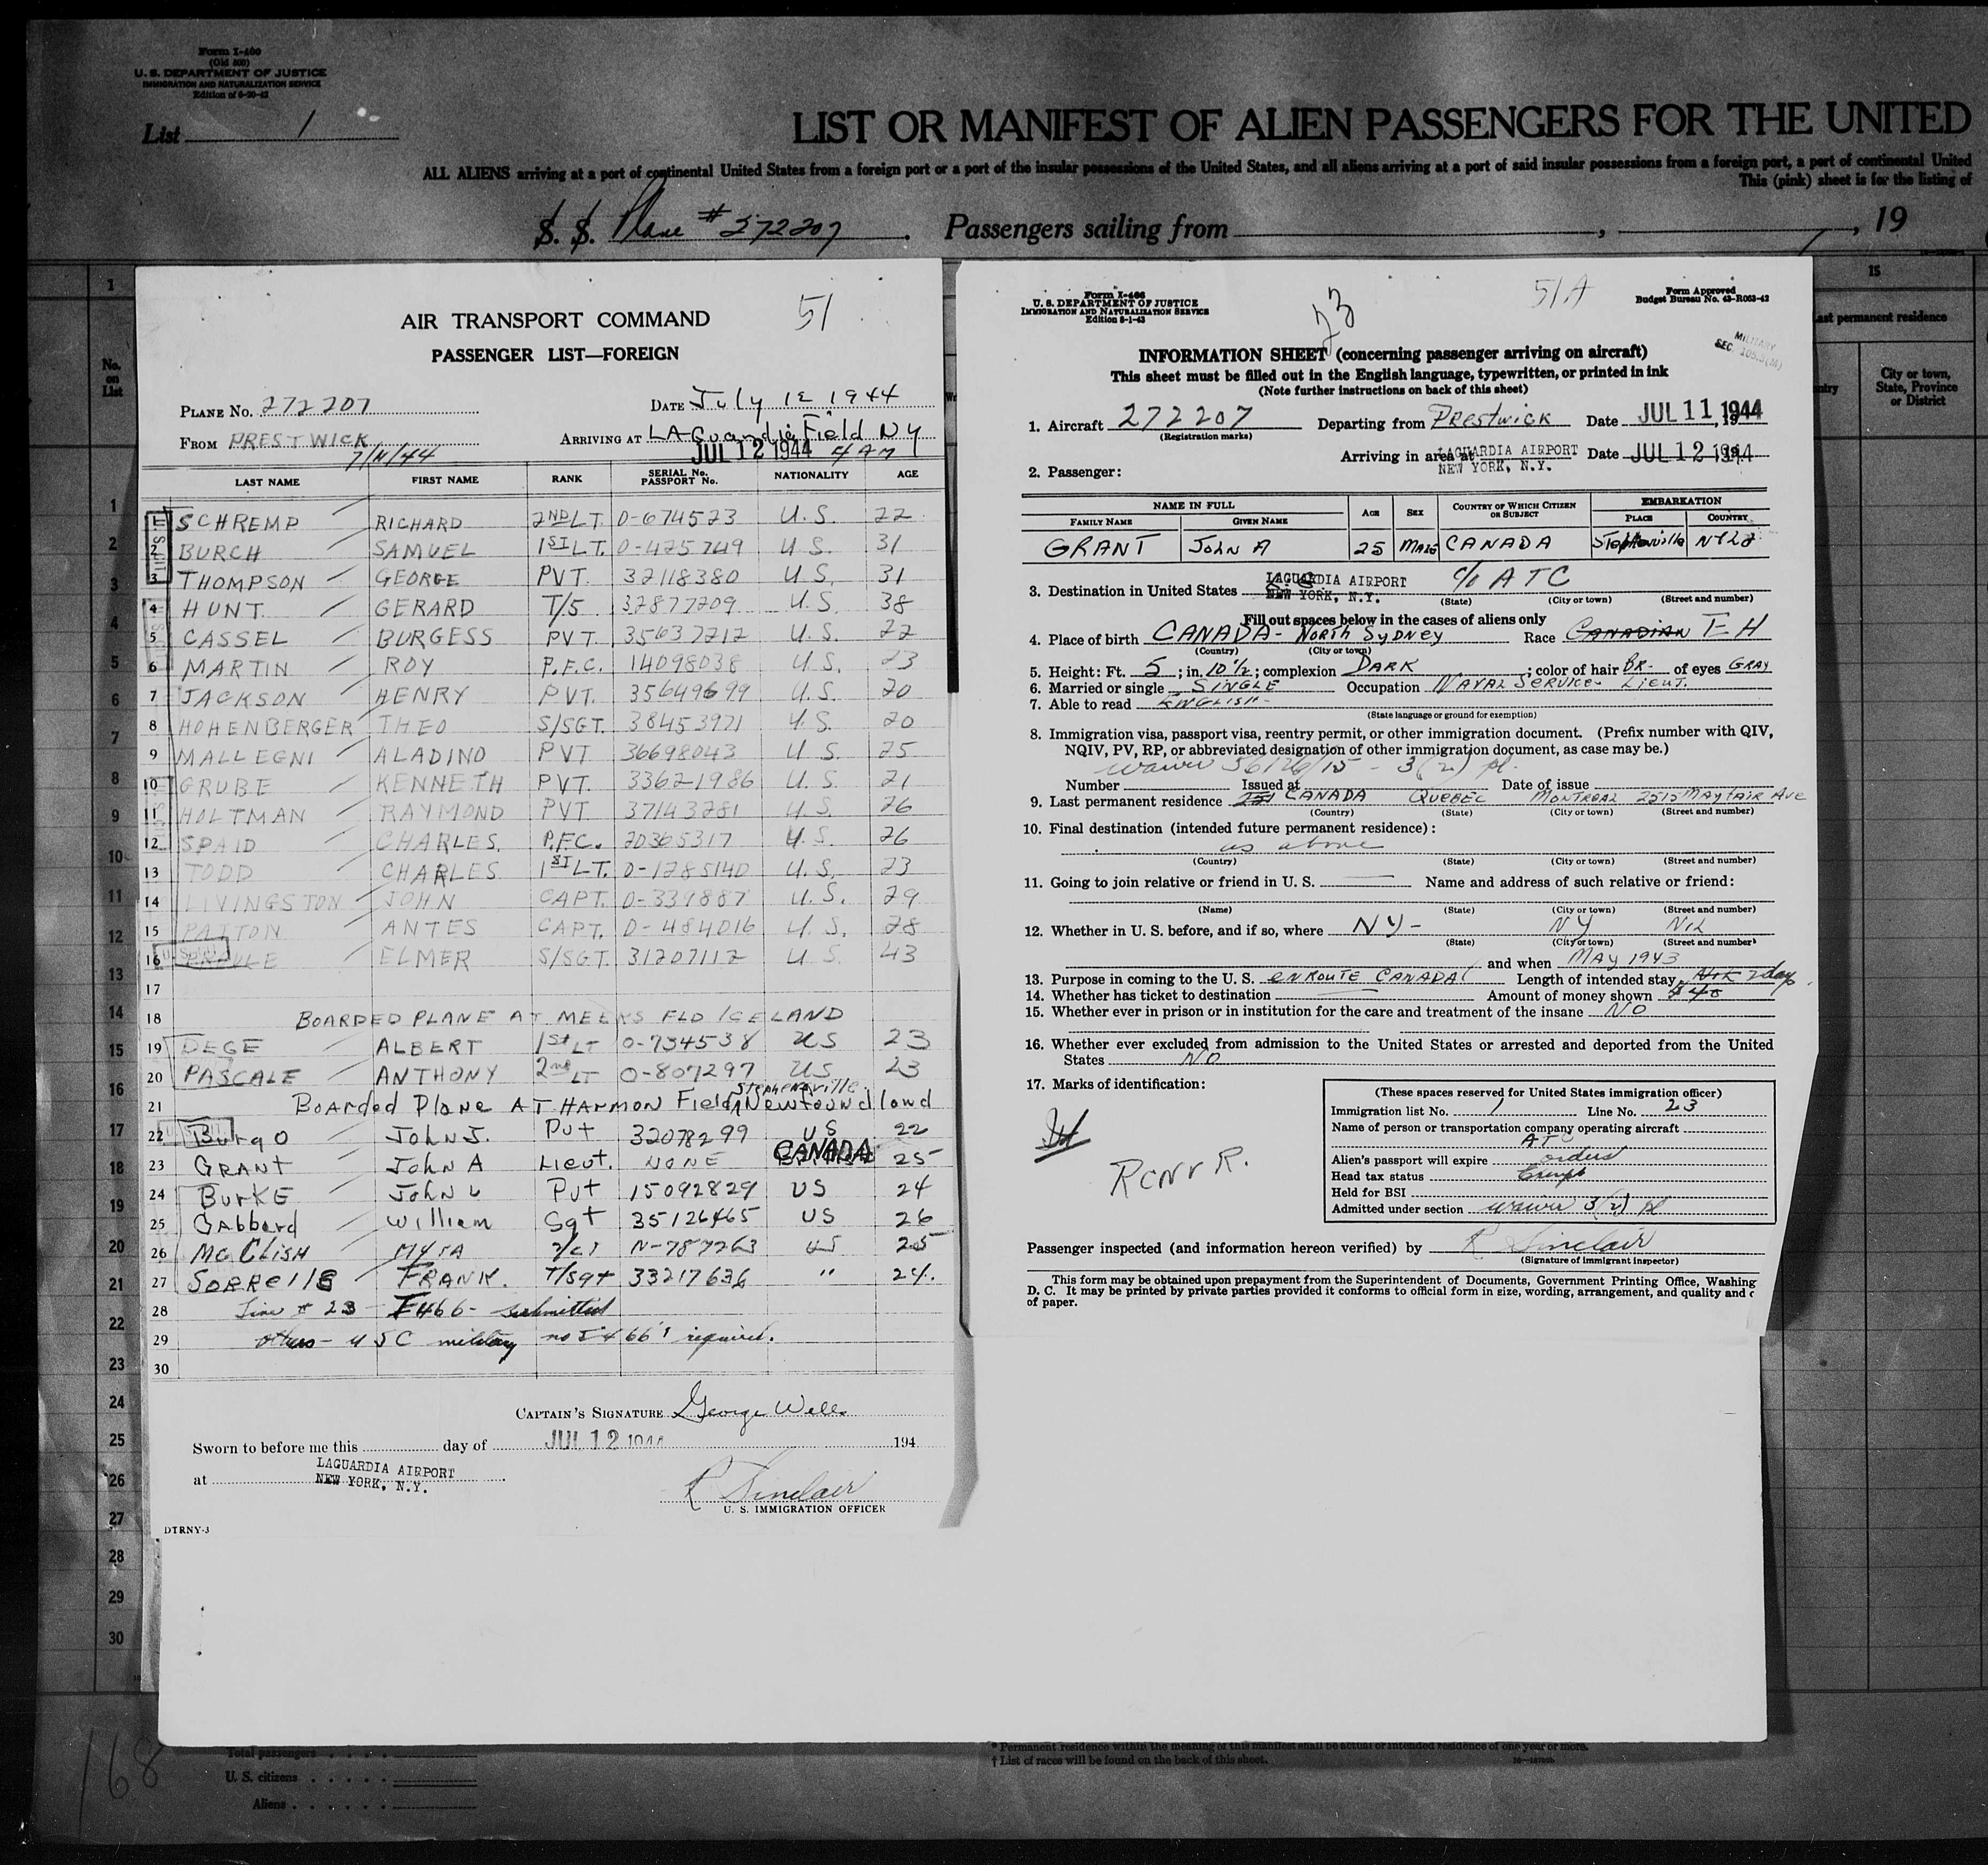 Form I-460
(Old 500)
U. S. DEPARTMENT OF JUSTICE
IMMIGRATION AND NATURALIZATION SERVICE
List 1
LIST OR MANIFEST OF ALIEN PASSENGERS FOR THE UNITED
ALL ALIENS arriving at a port of continental United States from a foreign port or a port of the insular possessions of the United States, and all aliens arriving at a port of said insular possessions from a foreign port, a port of continental United
This (pink) sheet is for the listing of
S. S. Plane # 272207 . Passengers sailing from , , 19
1
No. on List
15
ast permanent residence
City or town, State, Province or District
AIR TRANSPORT COMMAND 51
PASSENGER LIST—FOREIGN
PLANE No. 272207 DATE July 12 1944
FROM PRESTWICK ARRIVING AT LAGuardia Field NY
7/11/44 JUL 12 1944 4 AM
LAST NAME FIRST NAME RANK SERIAL No. PASSPORT No. NATIONALITY AGE
SCHREMP RICHARD 2ND LT. O-674523 U.S. 22
2 BURCH SAMUEL 1ST LT. O-425749 U.S. 31
3 THOMPSON GEORGE PVT. 32118380 U.S. 31
4 HUNT. GERARD T/5 32877209 U.S. 38
5 CASSEL BURGESS PVT. 35637212 U.S. 22
6 MARTIN ROY P.F.C. 14098038 U.S. 23
7 JACKSON HENRY PVT. 35649699 U.S. 20
8 HOHENBERGER THEO S/SGT. 38453971 U.S. 20
9 MALLEGNI ALADINO PVT 36698043 U.S. 25
10 GRUBE KENNETH PVT. 33621986 U.S. 21
11 HOLTMAN RAYMOND PVT. 37143281 U.S. 26
12 SPAID CHARLES. P.F.C. 20365317 U.S. 26
13 TODD CHARLES 1ST LT. O-1285140 U.S. 23
14 LIVINGSTON JOHN CAPT. O-339887 U.S. 29
15 PATTON ANTES CAPT. O-484016 U.S. 28
16 ELMER S/SGT. 31207112 U.S. 43
17
18 BOARDED PLANE AT MEEKS FLD ICELAND
19 DEGE ALBERT 1st LT O-734538 US 23
20 PASCALE ANTHONY 2nd LT O-807297 US 23
Stephenville
21 Boarded Plane AT HARMON Field Newfoundland
22 Burgo John J. Pvt 32078299 US 22
23 GRANT John A Lieut. NONE CANADA 25
24 BURKE John L Pvt 15092829 US 24
25 Gabbard William Sgt 35126465 US 26
26 McClish MYRA N-787263 US 25
27 Sorrells FRANK. T/Sgt 33217636 " 24.
28 Line # 23 - I 466 - submitted
29 others - USC military no I 466's required.
30
CAPTAIN'S SIGNATURE George Wells
Sworn to before me this day of JUL 12 1944 194
at LAGUARDIA AIRPORT
NEW YORK, N.Y.
R Sinclair
U. S. IMMIGRATION OFFICER
DTRNY-3
Form I-466
U. S. DEPARTMENT OF JUSTICE
IMMIGRATION AND NATURALIZATION SERVICE
Edition 8-1-43
23
51A
Form Approved
Budget Bureau No. 43-R063-42
MILITARY
INFORMATION SHEET (concerning passenger arriving on aircraft)
This sheet must be filled out in the English language, typewritten, or printed in ink
(Note further instructions on back of this sheet)
1. Aircraft 272207 Departing from Prestwick Date JUL 11 1944, 19
(Registration marks)
Arriving in area at LAGUARDIA AIRPORT NEW YORK, N.Y. Date JUL 12 1944
2. Passenger:
NAME IN FULL AGE SEX COUNTRY OF WHICH CITIZEN OR SUBJECT EMBARKATION
FAMILY NAME GIVEN NAME PLACE COUNTRY
GRANT John A 25 MALE CANADA Stephenville NFLD
3. Destination in United States LAGUARDIA AIRPORT NEW YORK, N.Y. c/o ATC
(State) (City or town) (Street and number)
Fill out spaces below in the cases of aliens only
4. Place of birth CANADA - NORTH SYDNEY Race CANADIAN EH
(Country) (City or town)
5. Height: Ft. 5 ; in. 10 1/2 ; complexion DARK ; color of hair BR- of eyes GRAY
6. Married or single SINGLE Occupation NAVAL SERVICE - LIEUT.
7. Able to read ENGLISH -
(State language or ground for exemption)
8. Immigration visa, passport visa, reentry permit, or other immigration document. (Prefix number with QIV,
NQIV, PV, RP, or abbreviated designation of other immigration document, as case may be.)
waiver 56126/15 - 3(2) pl.
Number Issued at Date of issue
9. Last permanent residence CANADA QUEBEC MONTREAL 2515 MAYFAIR AVE
(Country) (State) (City or town) (Street and number)
10. Final destination (intended future permanent residence):
as above
(Country) (State) (City or town) (Street and number)
11. Going to join relative or friend in U. S. Name and address of such relative or friend:
(Name) (State) (City or town) (Street and number)
12. Whether in U. S. before, and if so, where NY - NY NIL
(State) (City or town) (Street and number)
and when MAY 1943
13. Purpose in coming to the U. S. ENROUTE CANADA Length of intended stay 2 day
14. Whether has ticket to destination Amount of money shown $40
15. Whether ever in prison or in institution for the care and treatment of the insane NO
16. Whether ever excluded from admission to the United States or arrested and deported from the United
States NO
17. Marks of identification:
RCNVR.
(These spaces reserved for United States immigration officer)
Immigration list No. 1 Line No. 23
Name of person or transportation company operating aircraft
ATC
Alien's passport will expire orders
Head tax status Exempt
Held for BSI
Admitted under section waiver 3(2) pl
Passenger inspected (and information hereon verified) by R Sinclair
(Signature of immigrant inspector)
This form may be obtained upon prepayment from the Superintendent of Documents, Government Printing Office, Washing
D. C. It may be printed by private parties provided it conforms to official form in size, wording, arrangement, and quality and c
of paper.
168
Total passengers
U. S. citizens
Aliens
* Permanent residence within the meaning of this manifest shall be actual or intended residence of one year or more.
† List of races will be found on the back of this sheet.